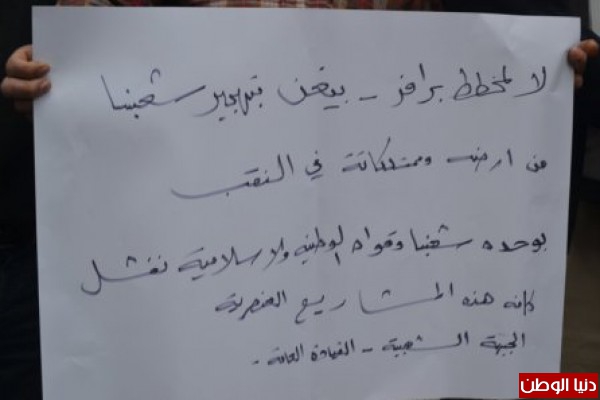 لا لمخطط برافر - بيغن بتهجير شعبنا
من ارضه وممتلكاته في النقب
بوحده شعبنا وقواه الوطنيه ولاسلامية نفشل
كافه هذه المشاريع العنصرية
الجبهة الشعبية - القيادة العامة -
دنيا الوطن